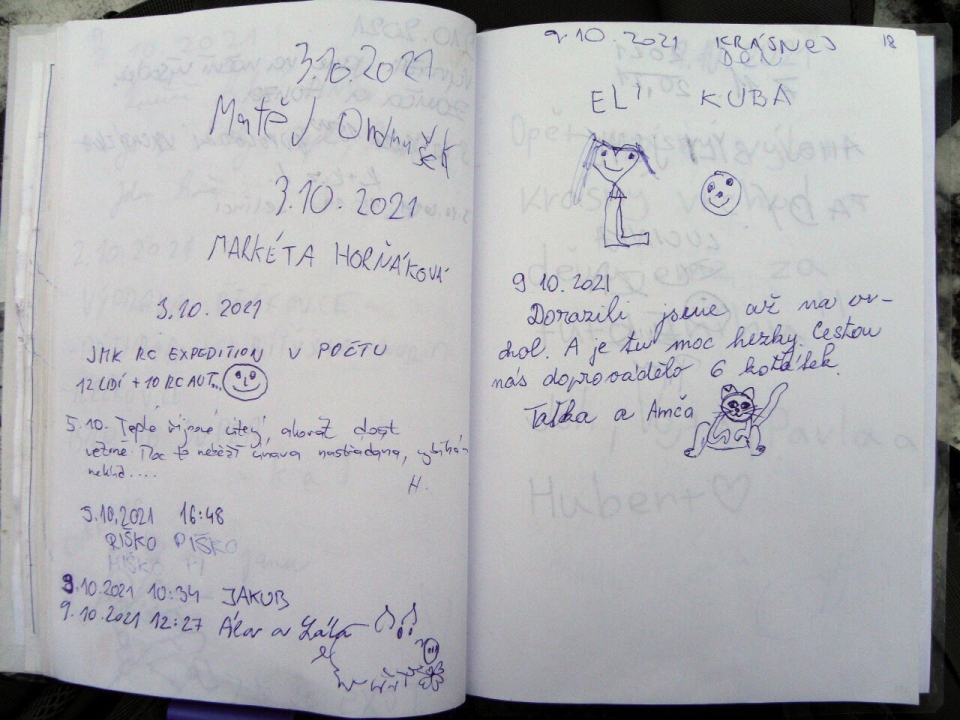 3.10.2021
Matěj Ondrušek
3.10.2021
MARKÉTA HORŇÁKOVÁ
3.10.2021
JMK RC EXPEDITION V POČTU
12 LIDÍ + 10 RC AUT...
5.10. Teplé říjnové úterý, akorát dost
větrné. Moc to neběží únava nastřádaná,
neklid....
H.
5.10.2021 16:48
RIŠKO PIŠKO
MIŠKO
9.10.2021 10:34 JAKUB
9.10.2021 12:27 a
9.10.2021 KRÁSNEJ
DEN
18
ELI KUBA
9.10.2021
Dorazili jsme až na vr-
chol. A je tu moc hezky. Cestou
nás doprovádělo 6 koťátek.
Taťka a Amča